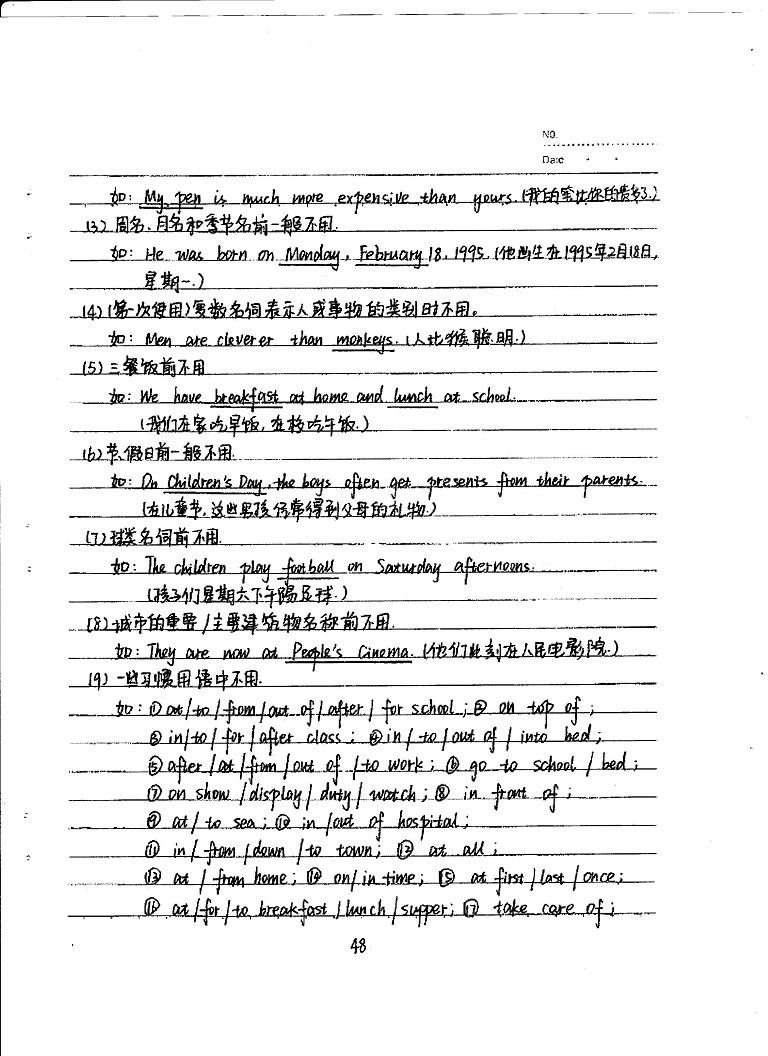 NO.
Date
如: My pen is much more expensive than yours. (我的笔比你的贵多了.)
(3) 周名、月名和季节名前一般不用.
如: He was born on Monday, February 18, 1995. (他出生在1995年2月18日,
星期一.)
(4) (第一次使用)复数名词表示人或事物的类别时不用。
如: Men are cleverer than monkeys. (人比猴聪明.)
(5) 三餐饭前不用
如: We have breakfast at home and lunch at school.
(我们在家吃早饭, 在校吃午饭.)
(6) 节、假日前一般不用.
如: On Children's Day, the boys often get presents from their parents.
(在儿童节, 这些男孩经常得到父母的礼物.)
(7) 球类名词前不用.
如: The children play football on Saturday afternoons.
(孩子们星期六下午踢足球.)
(8) 城市的重要/主要建筑物名称前不用.
如: They are now at People's Cinema. (他们此刻在人民电影院.)
(9) 一些习惯用语中不用.
如: ① at/to/from/out of/after/for school; ② on top of;
③ in/to/for/after class; ④ in/to/out of/into bed;
⑤ after/at/from/out of/to work; ⑥ go to school/bed;
⑦ on show/display/duty/watch; ⑧ in front of;
⑨ at/to sea; ⑩ in/out of hospital;
⑪ in/from/down/to town; ⑫ at all;
⑬ at/from home; ⑭ on/in time; ⑮ at first/last/once;
⑯ at/for/to breakfast/lunch/supper; ⑰ take care of;
48